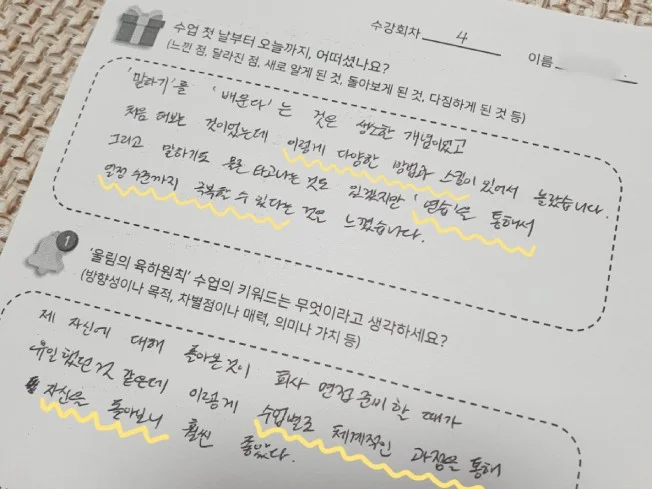 수강회차 4
이름
수업 첫 날부터 오늘까지, 어떠셨나요?
(느낀 점, 달라진 점, 새로 알게 된 것, 돌아보게 된 것, 다짐하게 된 것 등)
'말하기'를 '배운다'는 것은 생소한 개념이었고
처음 해보는 것이었는데 이렇게 다양한 방법과 스킬이 있어서 놀랐습니다.
그리고 말하기도 물론 타고나는 것도 있겠지만 '연습'을 통해서
일정 수준까지 극복할 수 있다는 것을 느꼈습니다.
1
'울림의 육하원칙' 수업의 키워드는 무엇이라고 생각하세요?
(방향성이나 목적, 차별점이나 매력, 의미나 가치 등)
제 자신에 대해 돌아본 것이 회사 면접 준비할 때가
유일했던 것 같은데 이렇게 수업별로 체계적인 과정을 통해
자신을 돌아보니 훨씬 좋았다.